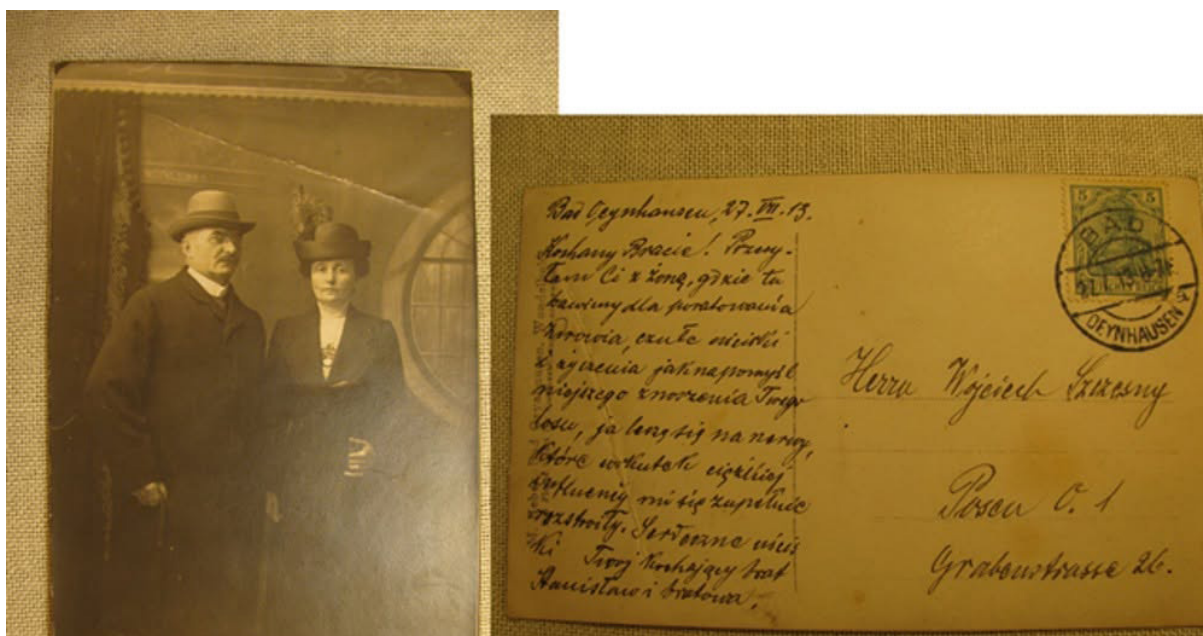 Bad Oeynhausen, 27. VII. 13.
Kochany Bracie! Przesy-
łam Ci z żoną, gdzie tu
bawimy dla poratowania
zdrowia, czułe uściski
z życzenia jaknajpomyśl
niejszego znoszenia Twego
losu, ja leczę się na nerwy,
które wskutek ciężkiej
mi się zupełnie
rozstroiły. Serdeczne uścis
ki Twój kochający brat
Stanisław i bratowa.
5 5
BAD
OEYNHAUSEN
Herrn Wojciech Szczesny
Posen O. 1
Grabenstrasse 26.